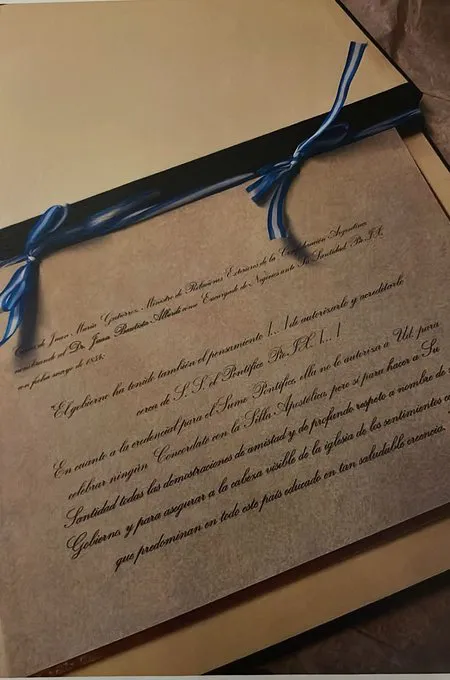 Carta de Juan María Gutiérrez, Ministro de Relaciones Exteriores de la Confederación Argentina
nombrando al Dr. Juan Bautista Alberdi como Encargado de Negocios ante Su Santidad Pío IX
con fecha mayo de 1855:
"El gobierno ha tenido también el pensamiento [...] de autorizarlo y acreditarlo
cerca de S. S. el Pontífice Pío IX [...]
En cuanto a la credencial para el Sumo Pontífice ella no lo autoriza a Ud. para
celebrar ningún Concordato con la Silla Apostólica pero sí para hacer a Su
Santidad todas las demostraciones de amistad y de profundo respeto a nombre de
Gobierno, y para asegurar a la cabeza visible de la iglesia de los sentimientos
que predominan en todo este país educado en tan saludable creencia."